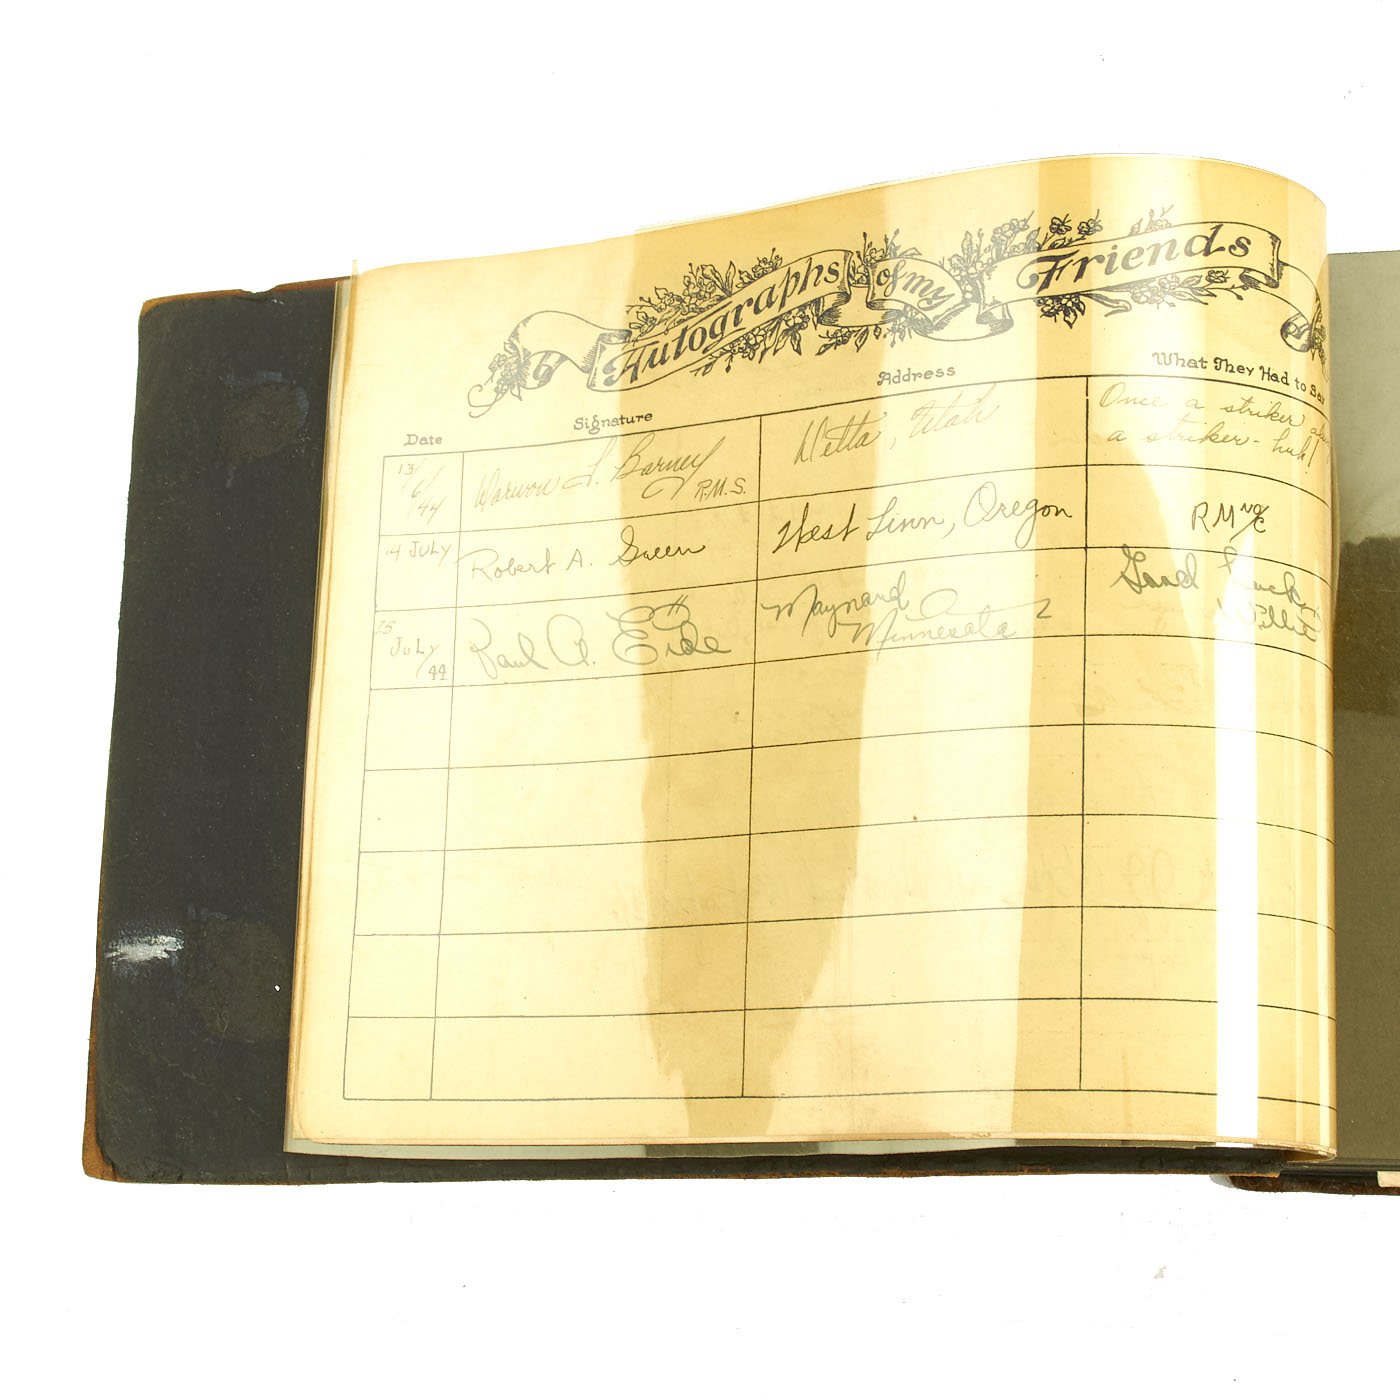 Autographs of my Friends
Date Signature Address What They Had to Say
13/6/44 L. Barney R.M.S. Utah Once a striker
a striker - huh!
14 JULY Robert A. Green West Linn, Oregon RM
25 JULY/44 Paul A. Eide Maynard Minnesota Good Luck
Willie